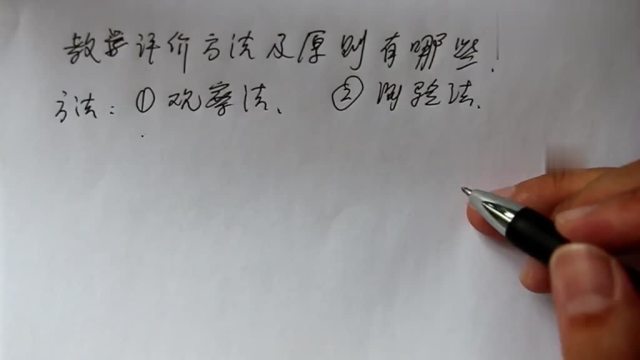 教学评价方法及原则有哪些!
方法:①观察法、 ②测验法、